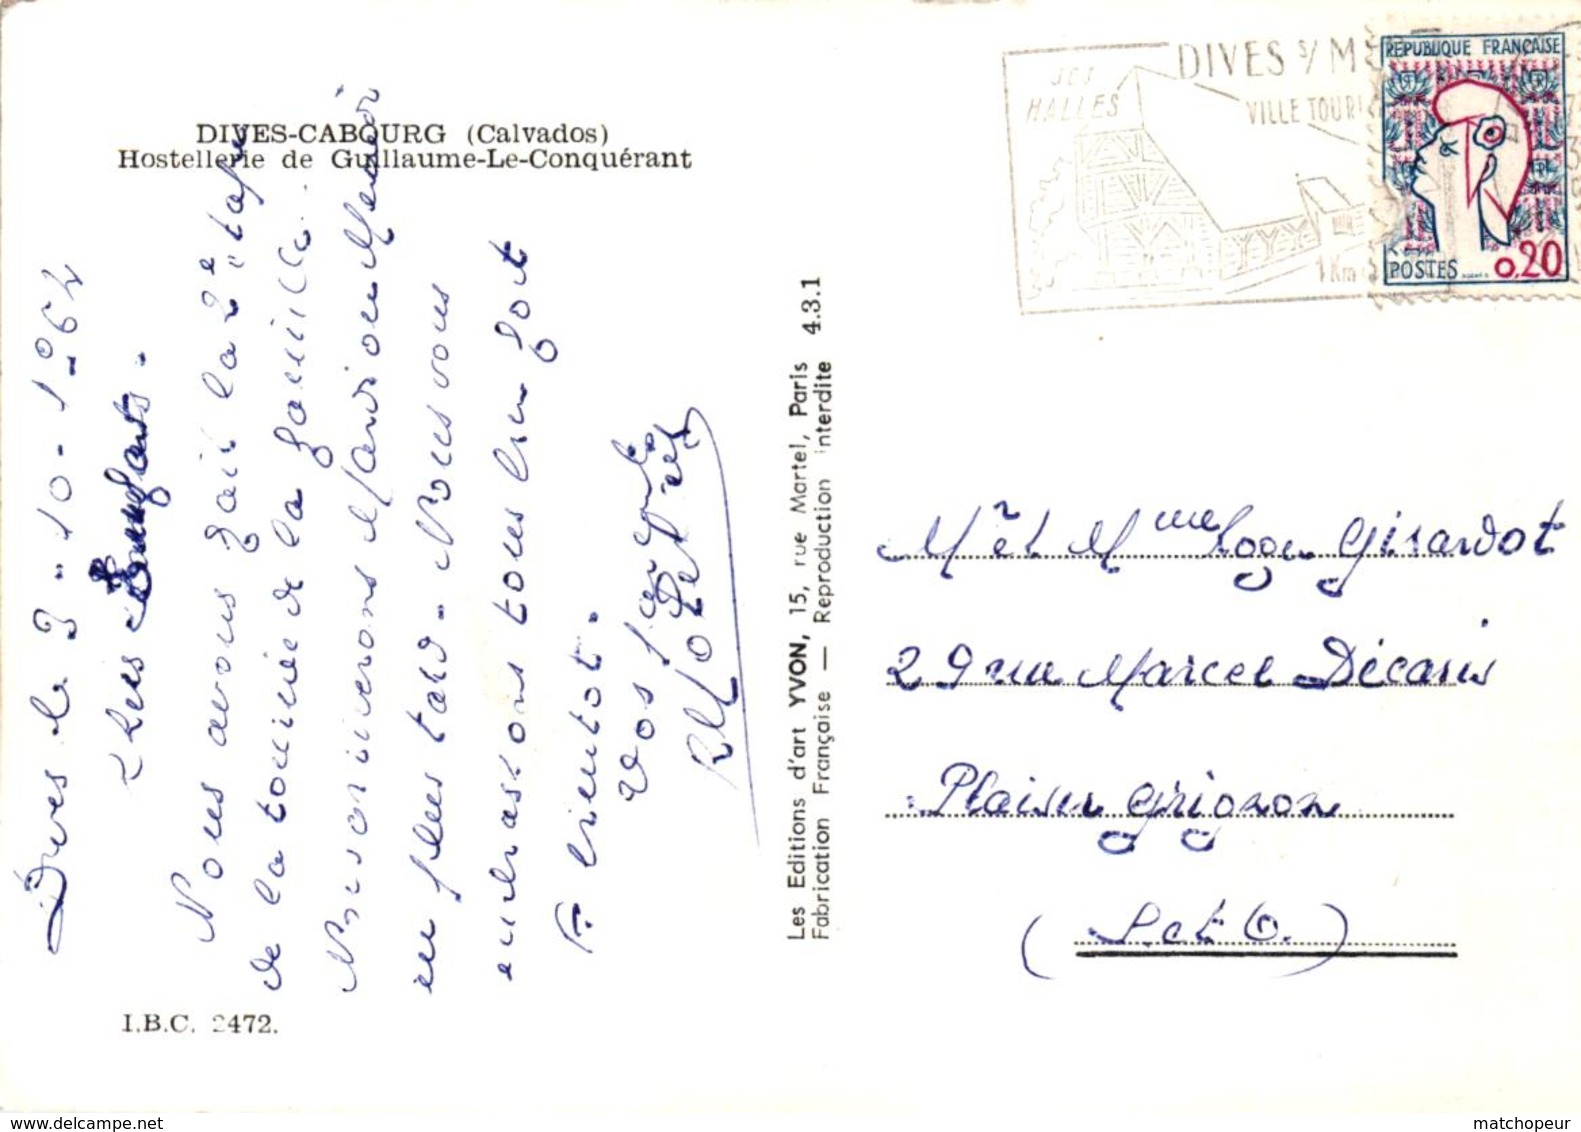 DIVES-CABOURG (Calvados)
Hostellerie de Guillaume-Le-Conquérant
Dives le 3-10-1962
Chers Enfants.
Nous avons fait la 2e "étape
de la tournée de la famille.
Nous arriverons Mardi ou Mercredi
au plus tard. Nous vous
embrassons tous bien fort
A bientot.
Vos
I.B.C. 2472.
Les Editions d'art YVON, 15, rue Martel, Paris 4.3.1
Fabrication Française — Reproduction interdite
DIVES S/ M
SES
HALLES
VILLE TOURI
1 Km
REPUBLIQUE FRANÇAISE
POSTES 0,20
Mr et Mme Roger Girardot
29 rue Marcel Décaris
Plaisir Grignon
(S et O.)
delcampe.net
matchopeur